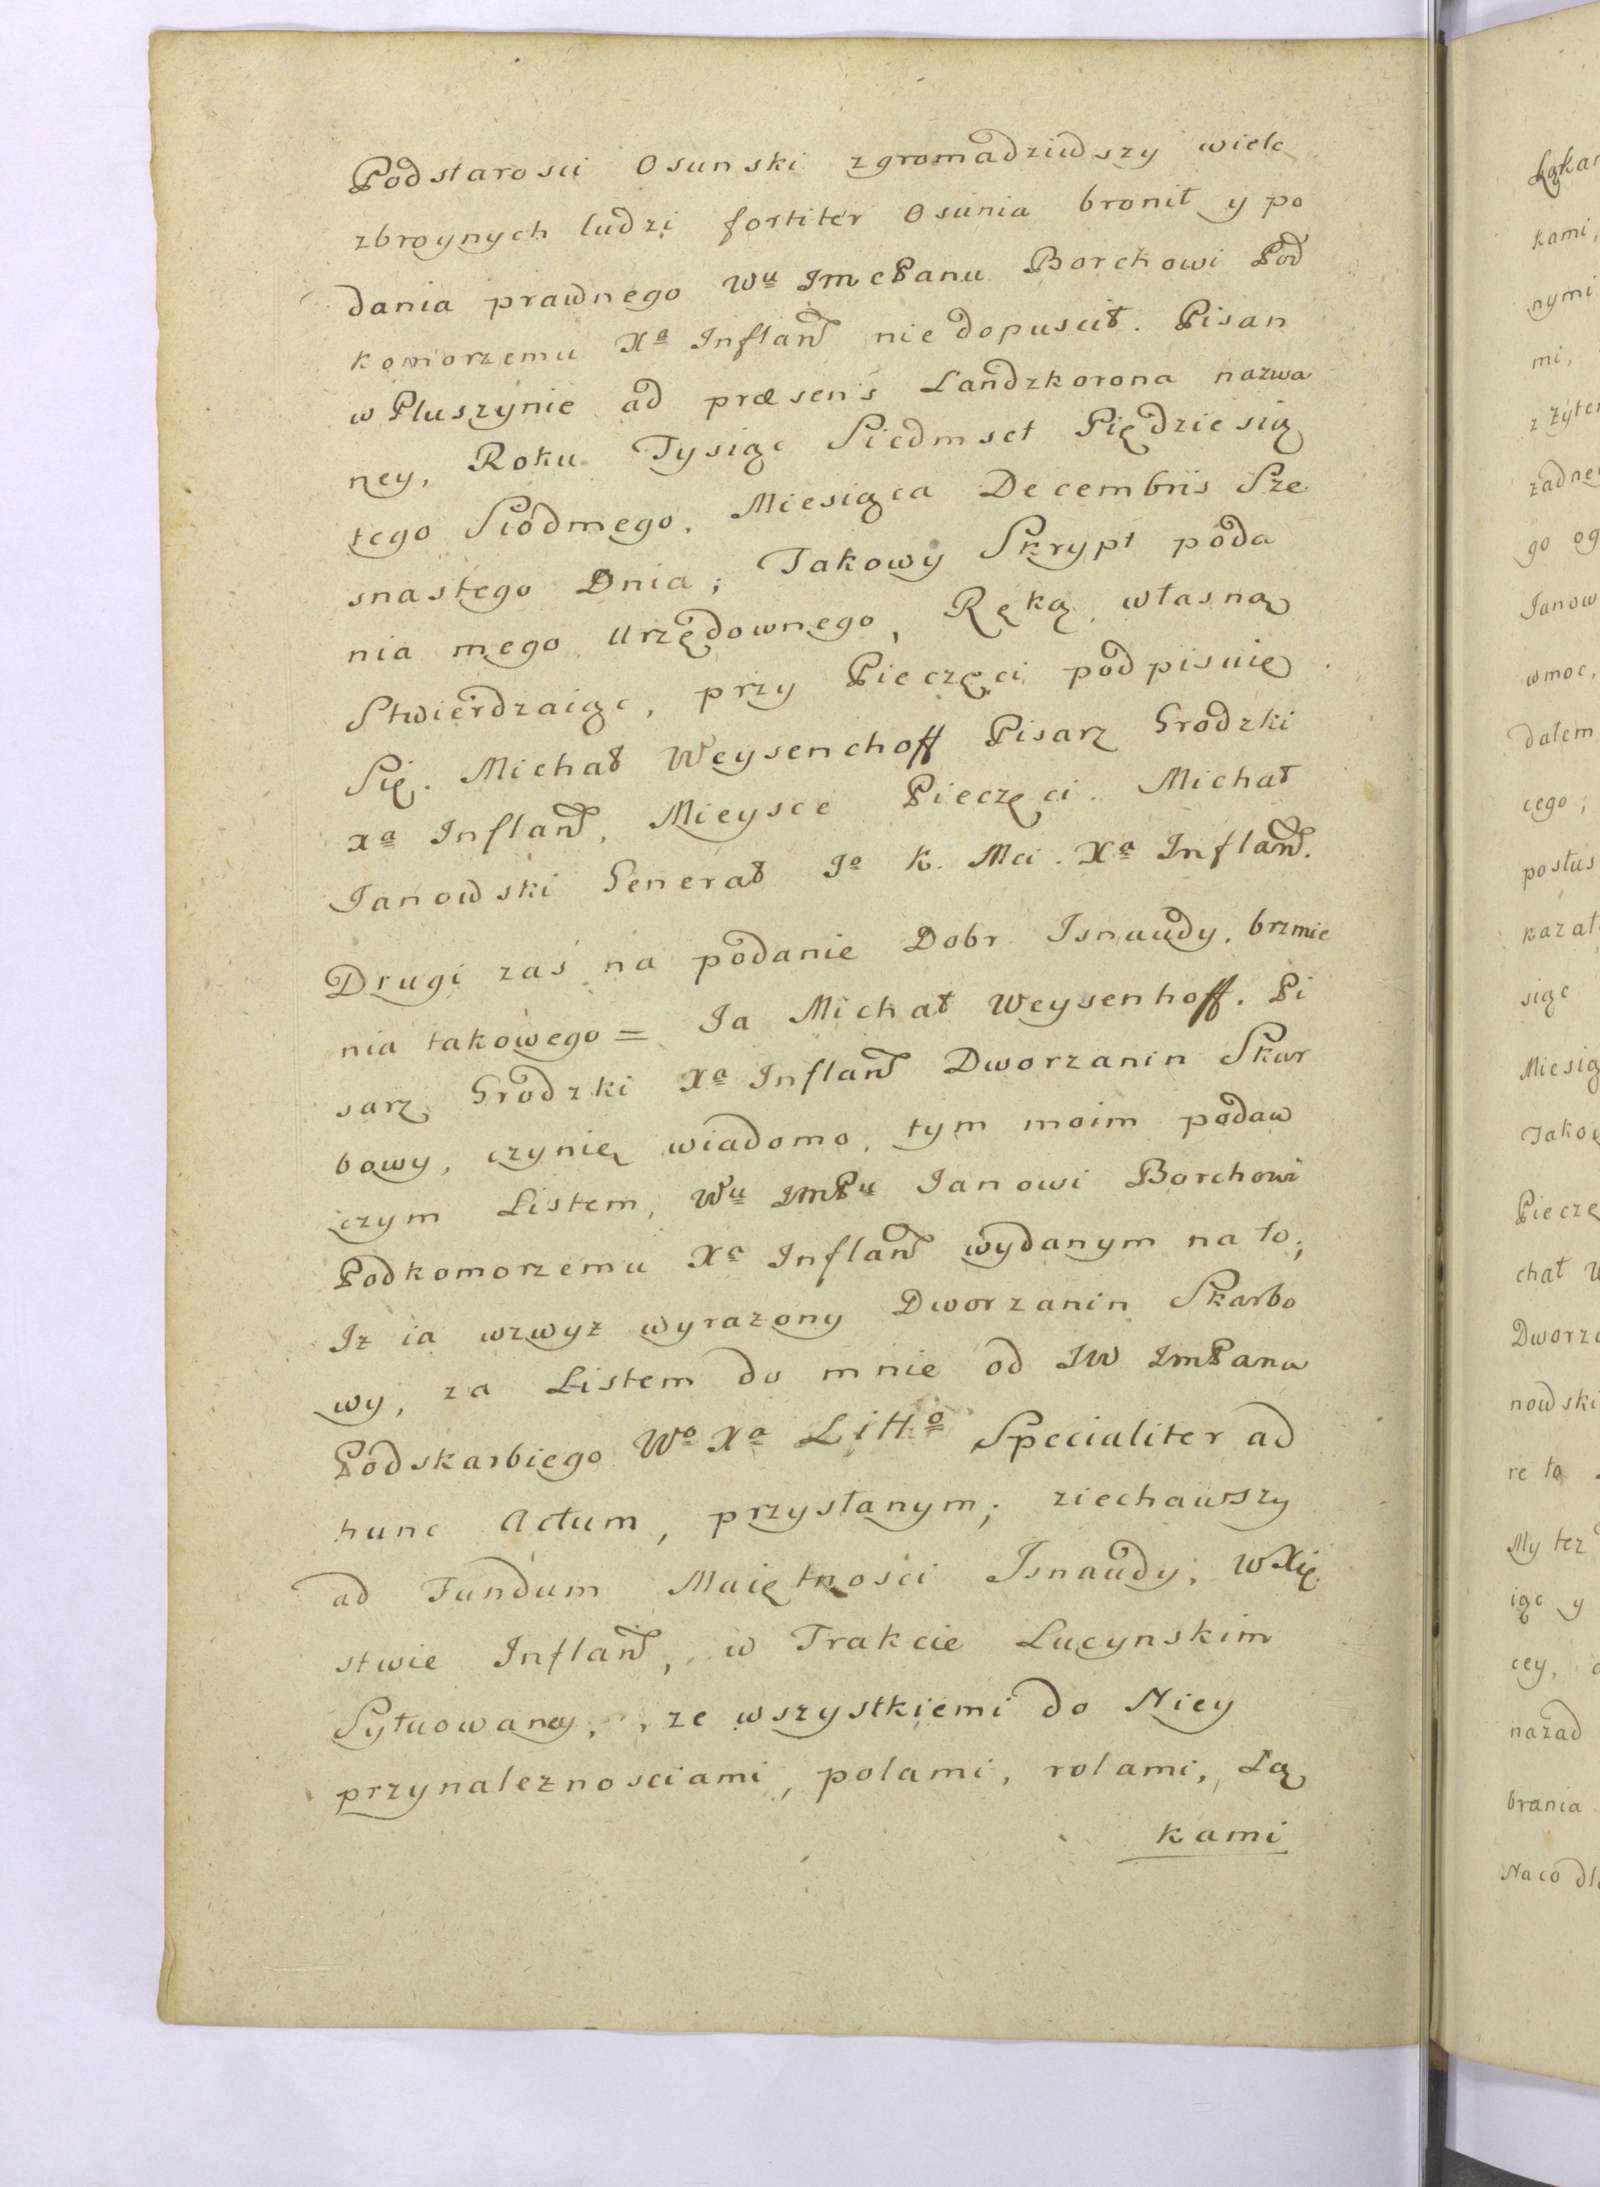 Podstarosci Osunski zgromadziwszy wiele
zbroynych ludzi fortiter Osunia bronił y po
dania prawnego Wu JmcPanu Borchowi Pod
komorzemu Xa Inflan nie dopuscił. Pisan
w Pluszynie ad præsens Landzkorona nazwa
ney, Roku Tysiąc Siedmset Piędziesią
tego Siódmego, Miesiąca Decembris Sze
snastego Dnia; Takowy Skrypt poda
nia mego Urzędownego, Ręką własną
Stwierdzaiąc, przy Pieczęci podpisuię
Się. Michał Weysenchoff Pisarz Grodzki
Xa Inflan, Mieysce Pieczęci. Michał
Janowski Generał Jo K. Mci. Xa Inflan.
Drugi zaś na podanie Dobr Isnaudy, brzmie
nia takowego = Ja Michał Weysenhoff. Pi
sarz Grodzki Xa Inflan Dworzanin Skar
bowy, czynię wiadomo, tym moim podaw
czym Listem, Wu JmPu Janowi Borchowi
Podkomorzemu Xa Inflan wydanym na to;
Iz ia wzwyż wyrazony Dworzanin Skarbo
wy, za Listem do mnie od JW JmPana
Podskarbiego Wo Xa Litto Specialiter ad
hunc Actum, przysłanym; ziechawszy
ad Fundum Maiętnosci Isnaudy, w Xię
stwie Inflan, w Trakcie Lucynskim
Sytuowaney, ze wszystkiemi do Niey
przynaleznosciami, polami, rolami, Łą
kami
Łąkam
kami,
nymi
mi,
z Zyte
zadne
go og
Janow
w moc,
dałem
cego;
posłus
kazał
siąc
Miesią
Tako
Piecze
chał W
Dworz
nowski
re to
My tez
iąc y
cey,
nazad
brania
Na co dl